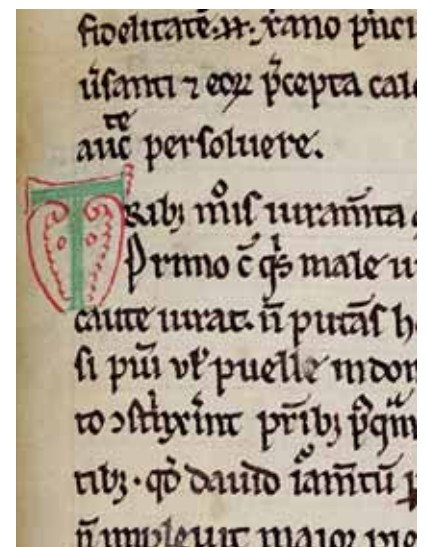 fidelitate. xƿano pͥnci
ūsanti ⁊ eoꝝ p̄cepta cal
te
auc̄ persoluere.
Tribꝫ mͦis iuram̄ta
Primo c̄ qͥs male iu
caute iurat. n̄ putāſ h
ſi pūi uł puelle in dom
to ꝯſtͥxīnt pr̄ibꝫ
tibꝫ · qͦd dauid iͣam̄tū
n̄ impleuit maior